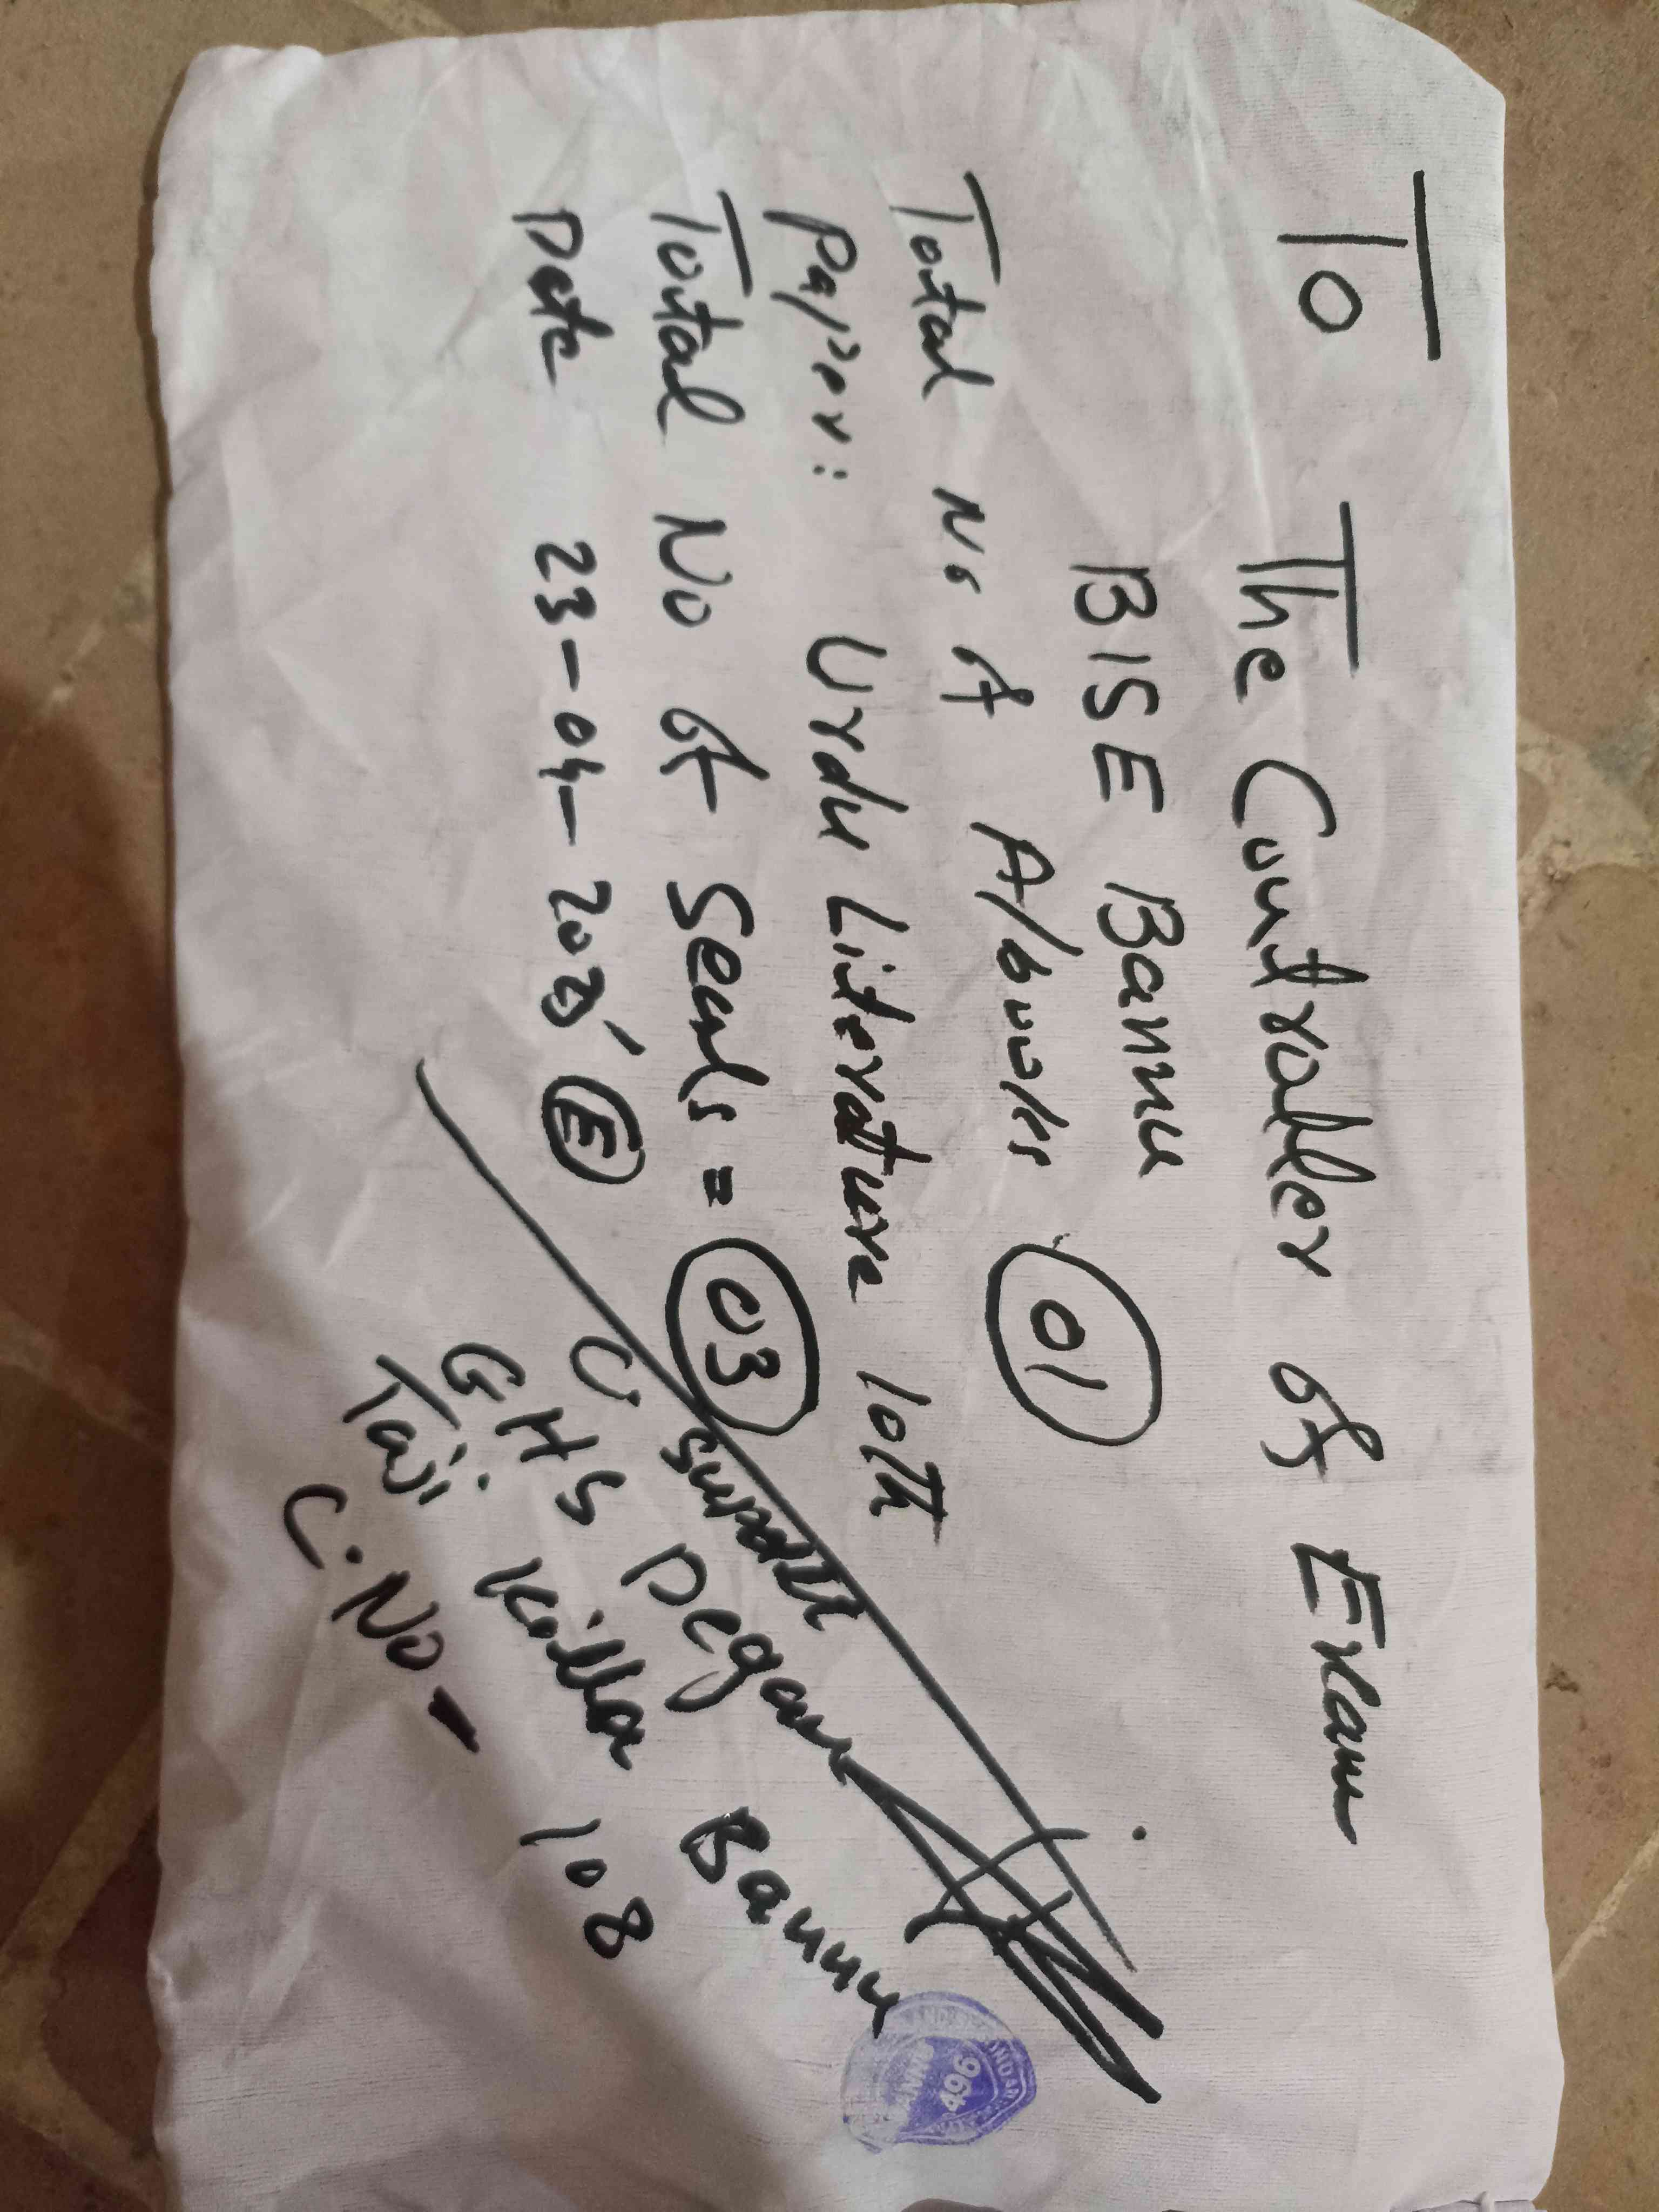 To
The Controller of Exam
BISE Bannu
Total No of A/books 01
Paper: Urdu Literature 10th
Total No of Seals = 03
Date 23-04-2025 (E)
Supdtt
GHS Degan
Taji Killa Bannu
C.No - 108
496